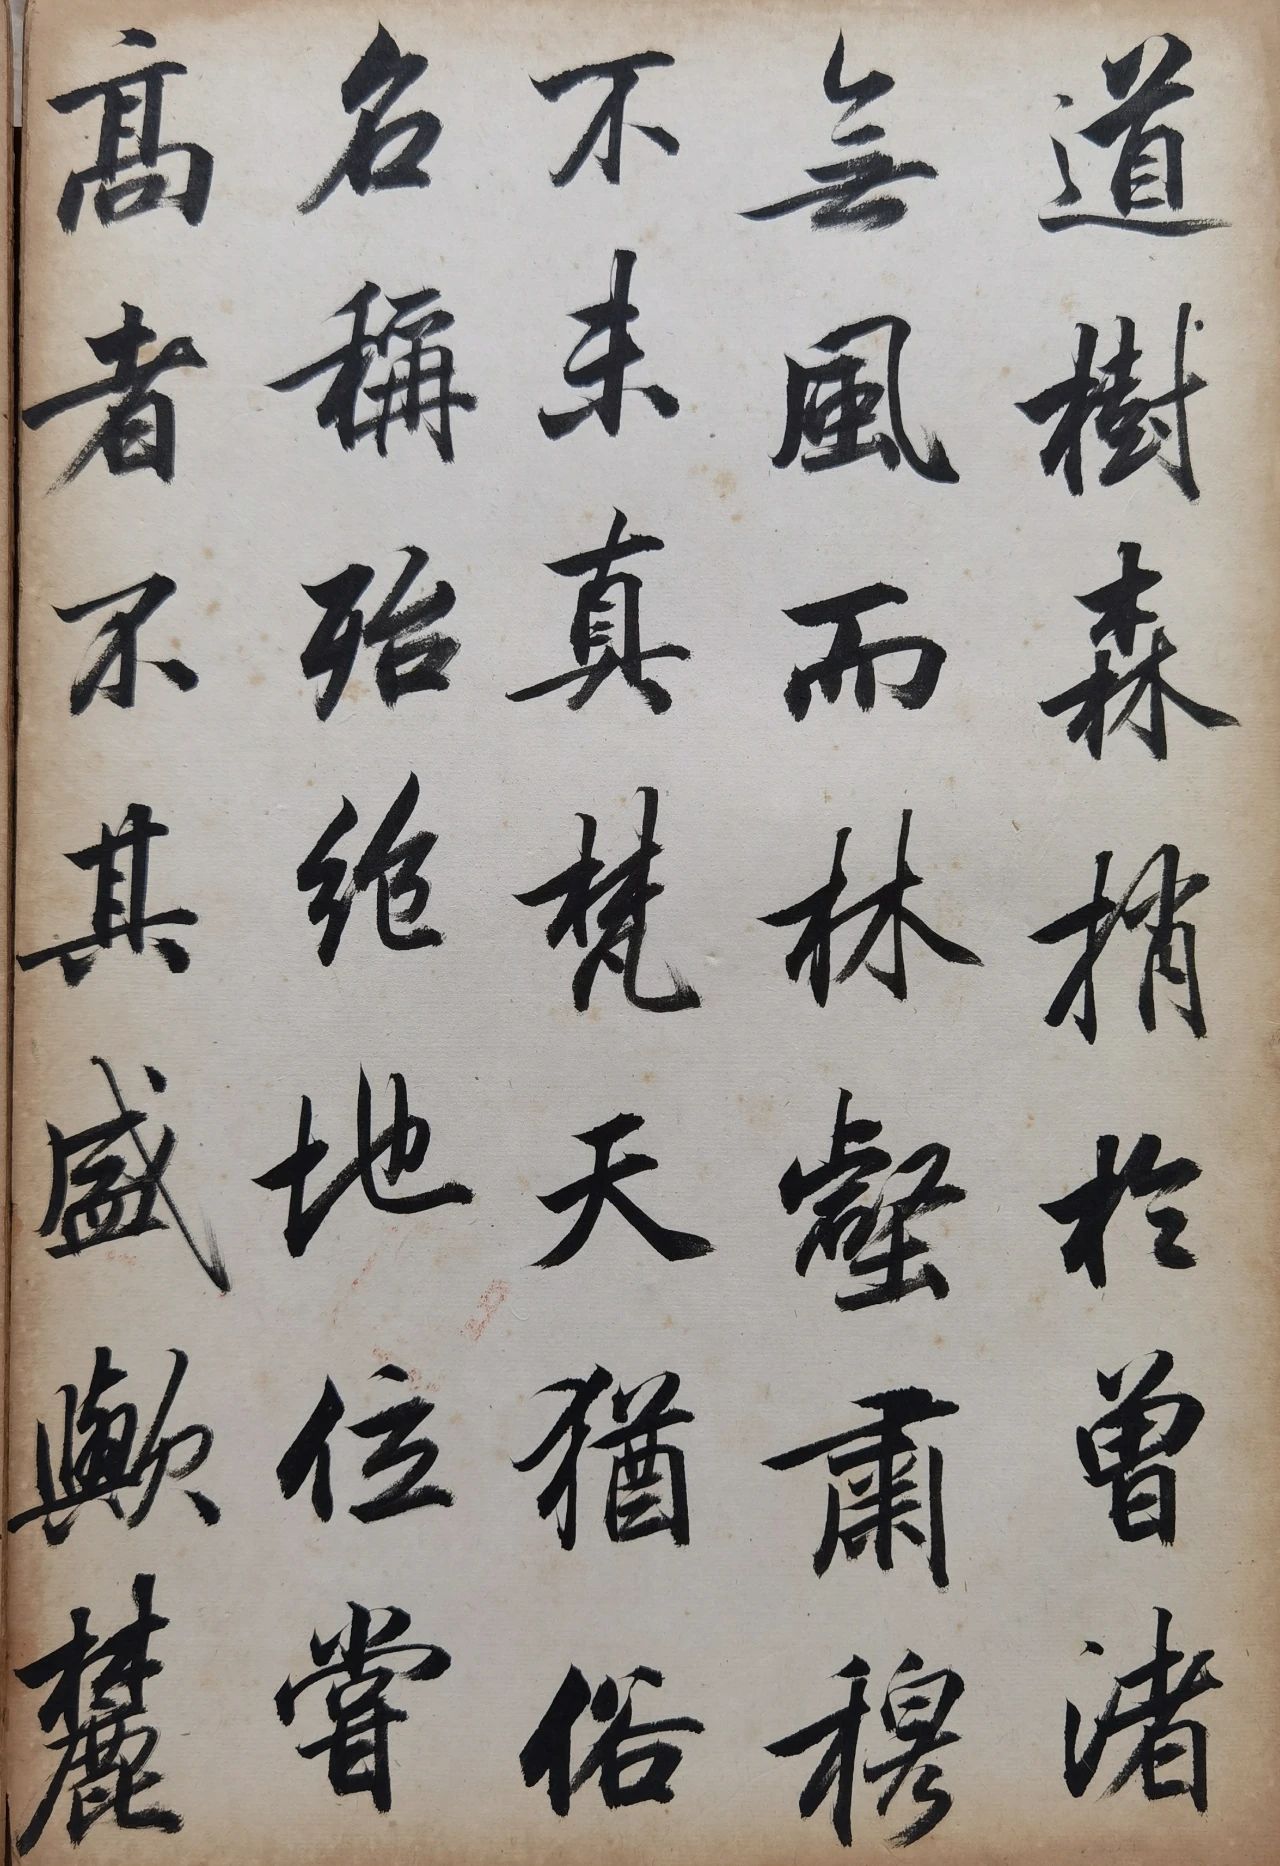 道樹森梢於曾渚
無風而林壑肅穆
不未真梵天猶俗
名稱殆絕地位嘗
高者不其盛歟麓